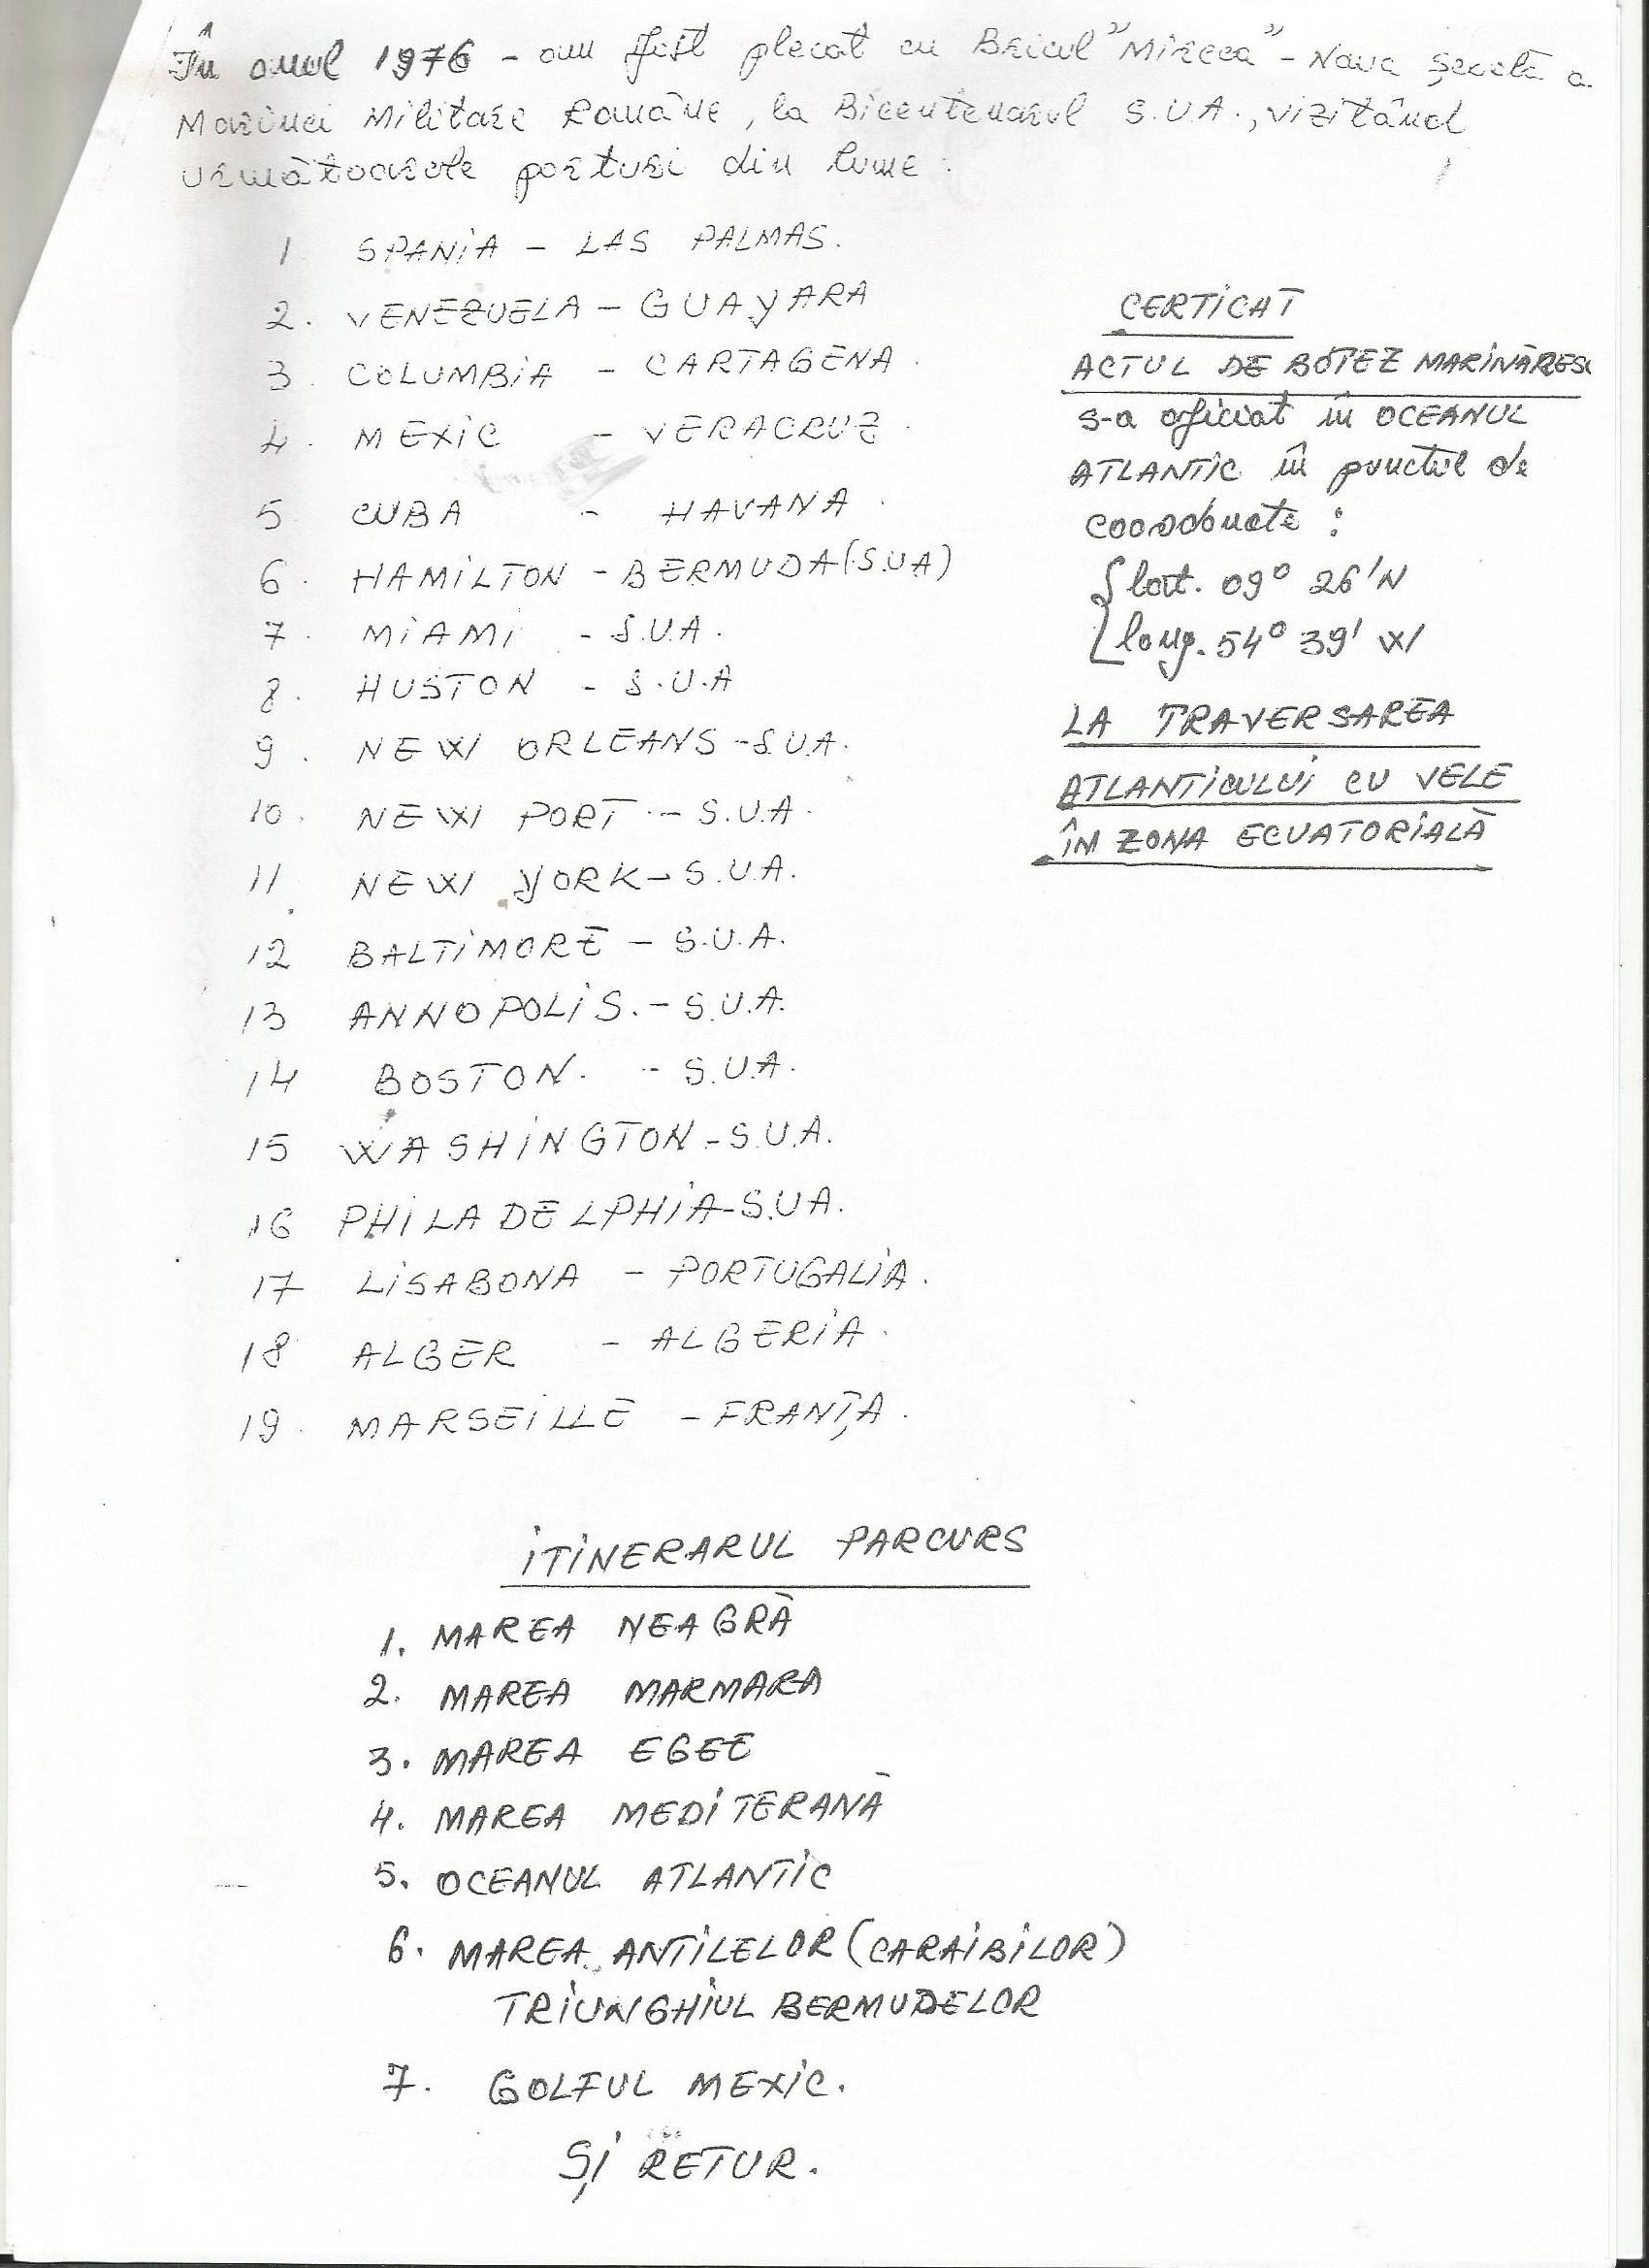 În anul 1976 - am fost plecat cu Bricul "Mircea" - Nava Școală a
Marinei Militare Române, la Bicentenarul S.U.A., vizitând
următoarele porturi din lume:
1 SPANIA - LAS PALMAS.
2. VENEZUELA - GUAYARA
3. COLUMBIA - CARTAGENA.
4. MEXIC - VERACRUZ.
5 CUBA - HAVANA.
6. HAMILTON - BERMUDA (S.U.A)
7. MIAMI - S.U.A.
8. HUSTON - S.U.A
9. NEW ORLEANS - S.U.A.
10. NEW PORT - S.U.A.
11. NEW YORK - S.U.A.
12 BALTIMORE - S.U.A.
13 ANNOPOLIS. - S.U.A.
14 BOSTON. - S.U.A.
15 WASHINGTON - S.U.A.
16 PHILADELPHIA - S.U.A.
17 LISABONA - PORTUGALIA.
18 ALGER - ALGERIA.
19. MARSEILLE - FRANȚA.
CERTICAT
ACTUL DE BOTEZ MARINĂRESC
s-a oficiat în OCEANUL
ATLANTIC în punctul de
coordonate:
lat. 09° 26' N
long. 54° 39' W
LA TRAVERSAREA
ATLANTICULUI CU VELE
ÎN ZONA ECUATORIALĂ
ITINERARUL PARCURS
1. MAREA NEAGRĂ
2. MAREA MARMARA
3. MAREA EGEE
4. MAREA MEDITERANĂ
5. OCEANUL ATLANTIC
6. MAREA ANTILELOR (CARAIBILOR)
TRIUNGHIUL BERMUDELOR
7. GOLFUL MEXIC.
ȘI RETUR.